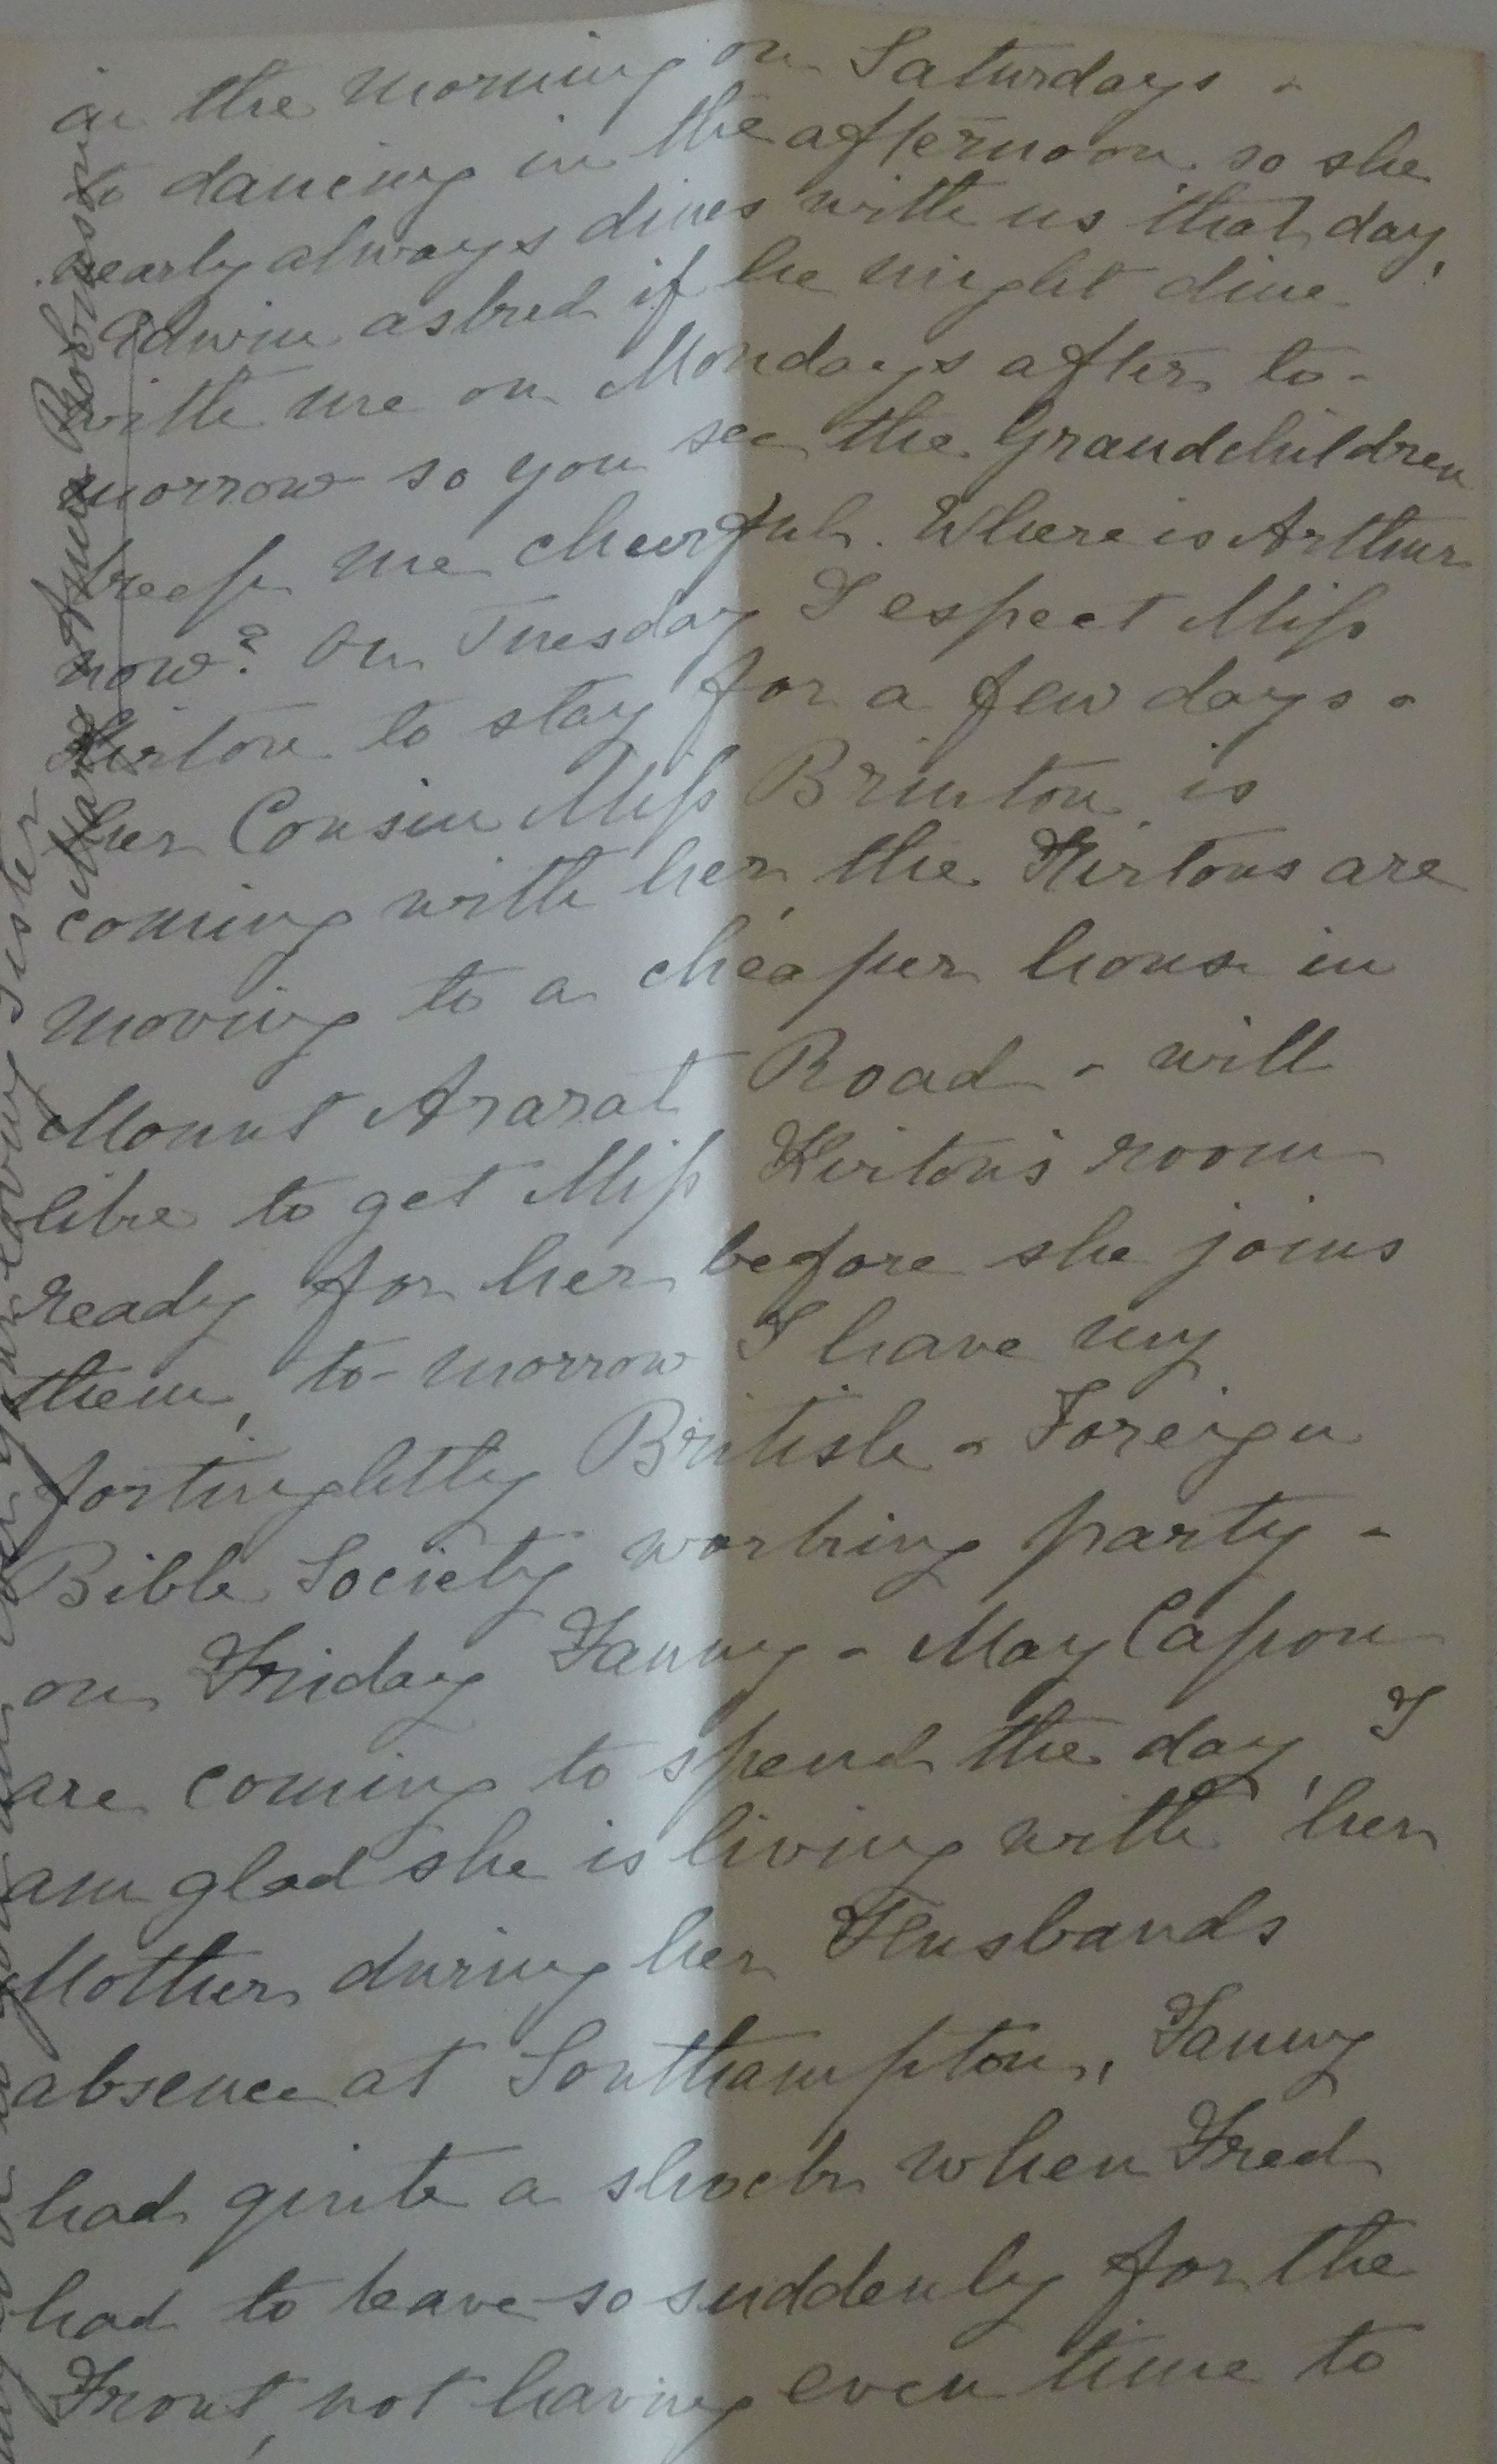 in the morning on Saturdays -
to dancing in the afternoon so she
nearly always dines with us that day,
Edwin asked if he might dine
with me on Mondays after to-
morrow so you see the Grandchildren
keep me cheerful. Where is Arthur
now? On Tuesday I expect Miss
Kirton to stay for a few days -
her Cousin Miss Brinton is
coming with her, the Kirtons are
moving to a cheaper house in
Mount Ararat Road - will
like to get Miss Kirton's room
ready for her before she joins
them, to-morrow I have my
fortnightly British - Foreign
Bible Society working party -
on Friday Fanny - May Capon
are coming to spend the day, I
am glad she is living with her
Mother during her Husbands
absence at Southampton, Fanny
had quite a shock when Fred
had to leave so suddenly for the
Front, not having even time to
loving Sister
Mary Anne Robinson